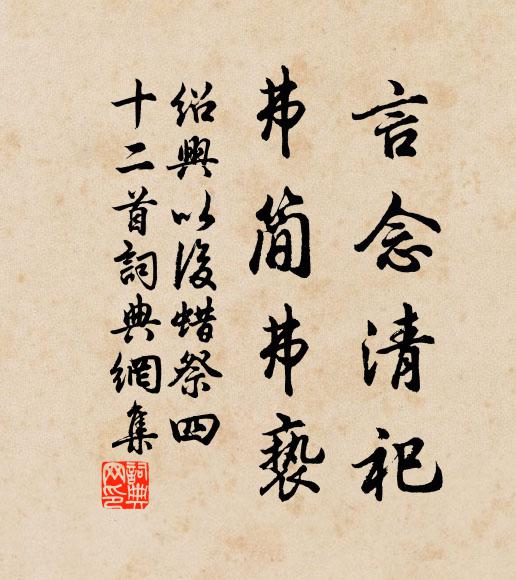 言念清祀
弗簡弗褻
紹興以後蜡祭四
十二首詞典網集
詞典网印